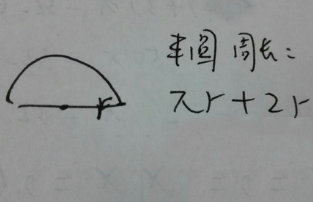 半圆周长:
πr+2r
r